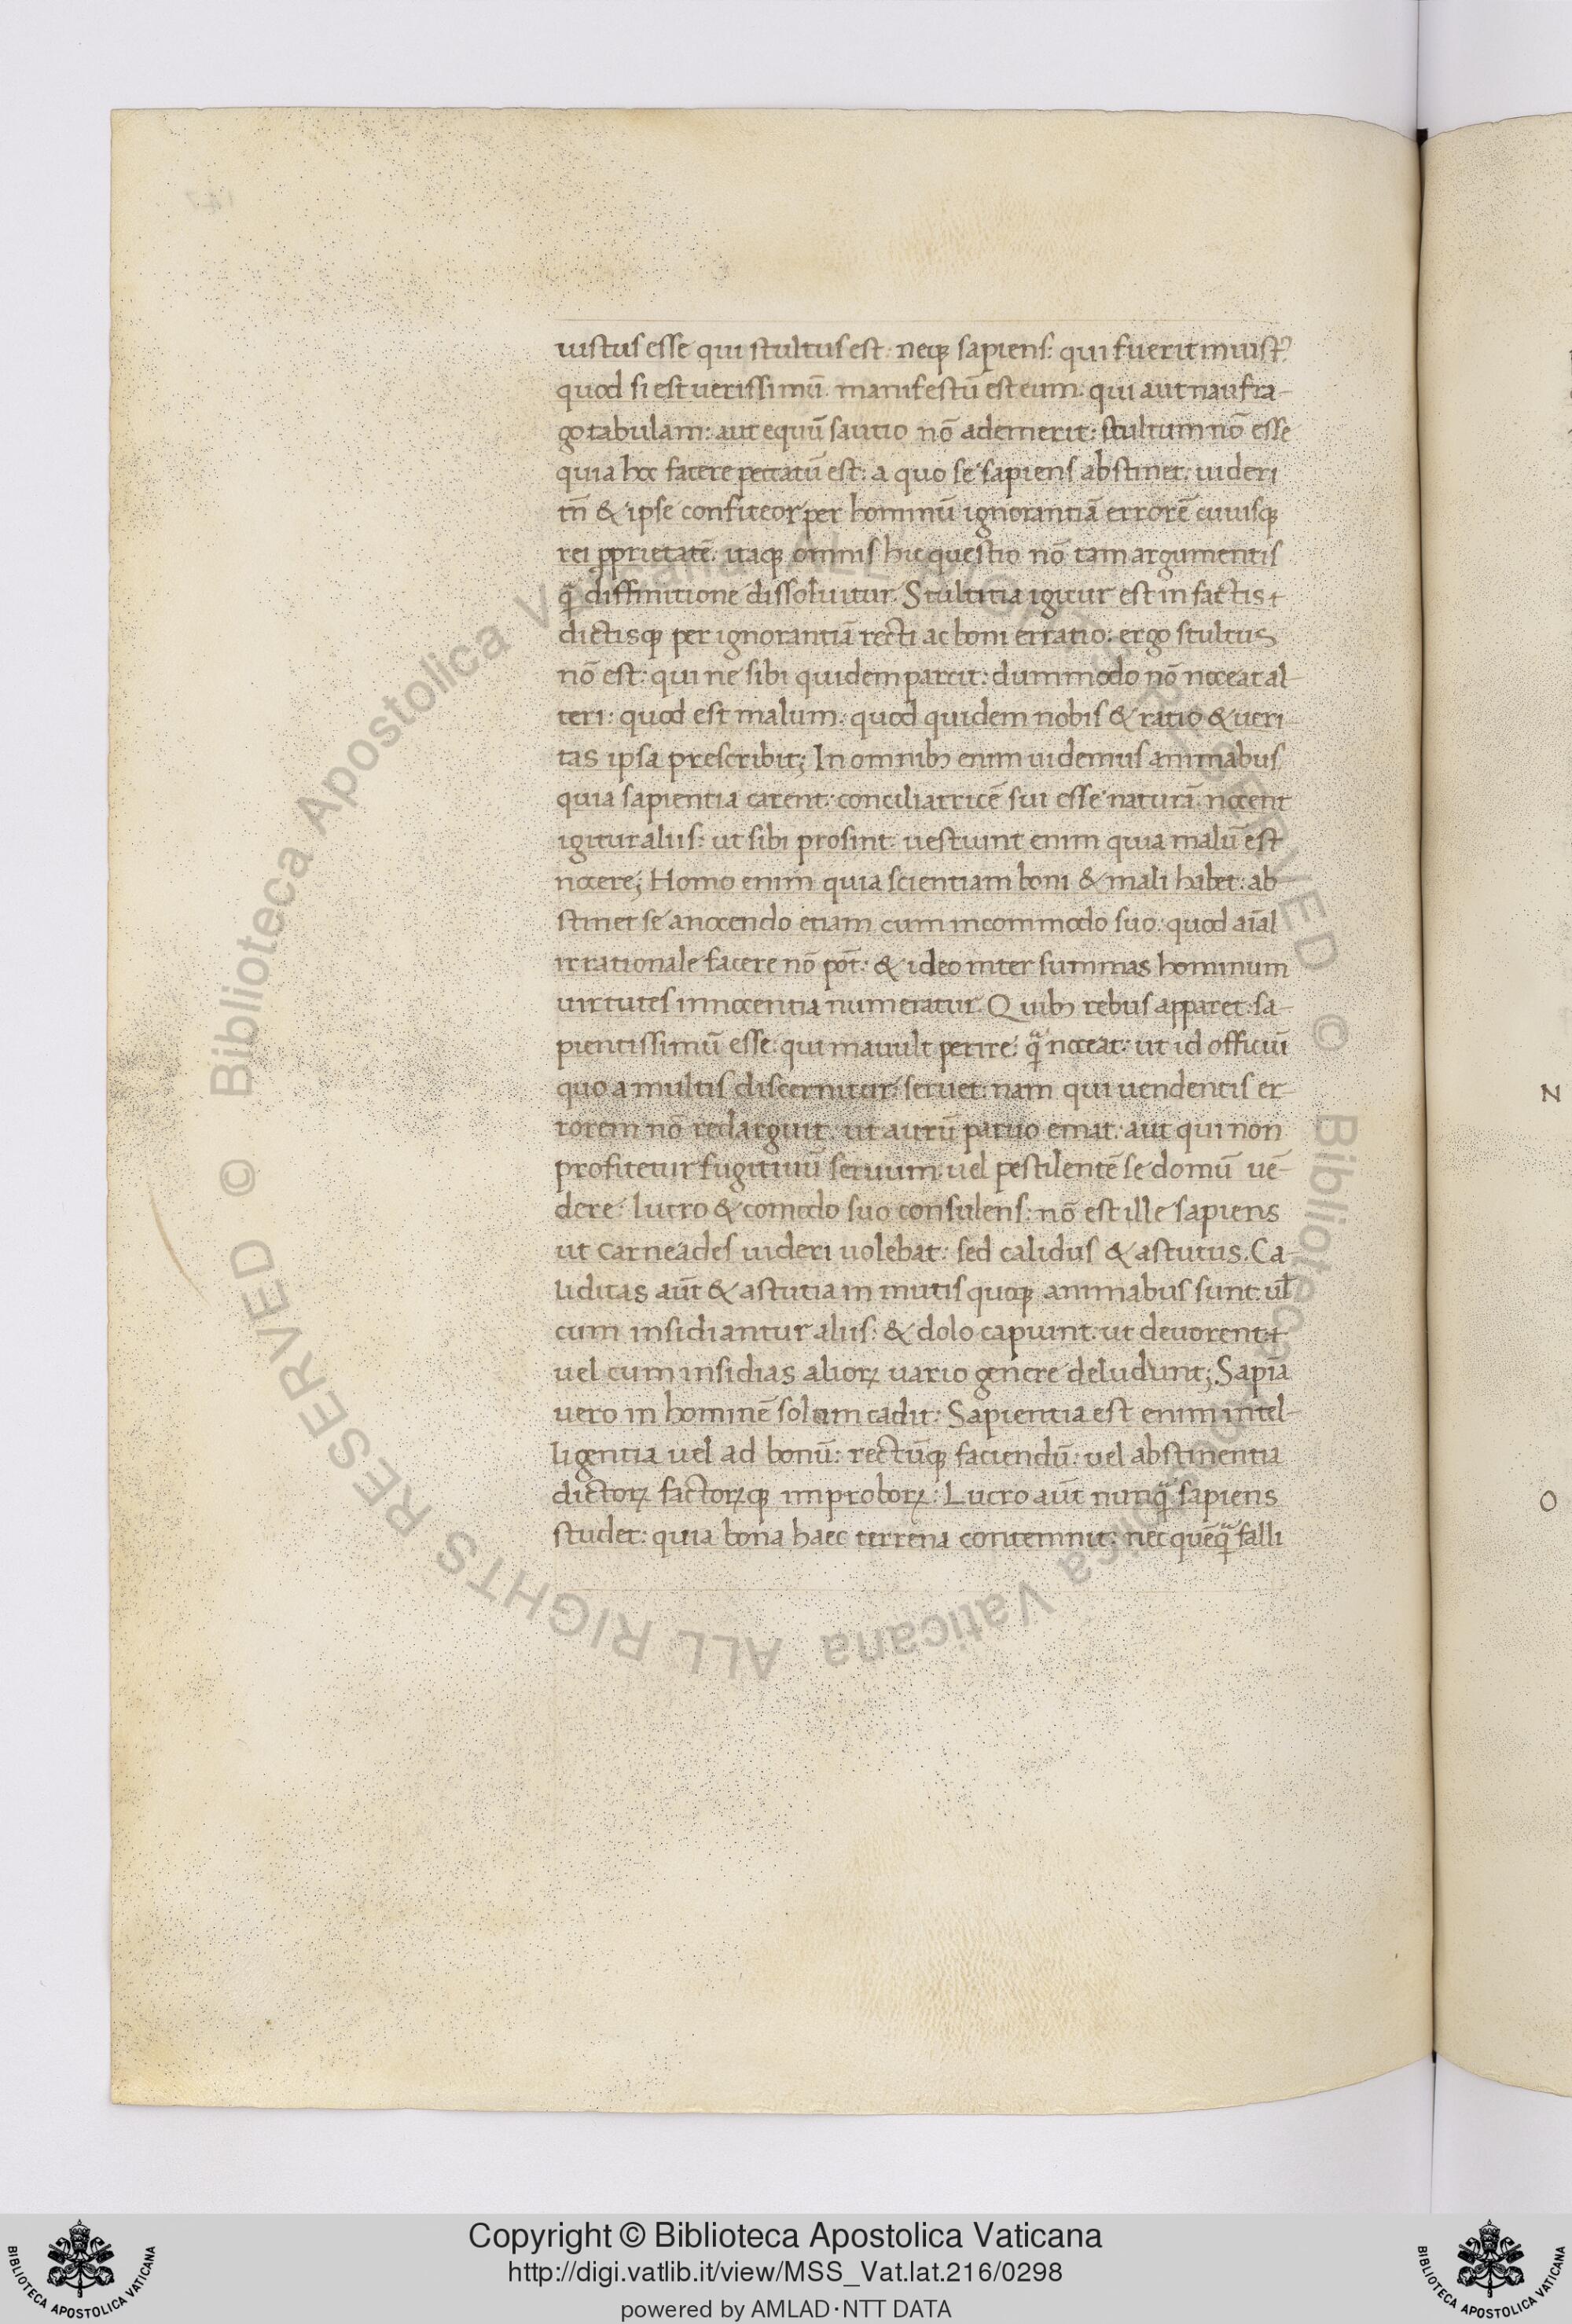 iustus esse qui stultus est. neqꝫ sapiens: qui fuerit iniustꝰ
quod si est uerissimū. manifestū est eum: qui aut naufra-
go tabulam: aut equū sautio nō ademerit: stultum nō esse
quia hoc facere peccatū est: a quo se sapiens abstinet. uideri
tn̄ & ipse confiteor per hominū ignorantiā errorē cuiusqꝫ
rei ꝓprietatē. itaqꝫ omnis hic questio nō tam argumentis
q̄ diffinitione dissoluitur. Stultitia igitur est in factis
dictisqꝫ per ignorantiā recti ac boni erratio: ergo stultus
nō est: qui ne sibi quidem parcit: dummodo nō noceat al
teri: quod est malum: quod quidem nobis & ratio & ueri
tas ipsa prescribit; In omnibꝫ enim uidemus animabus
quia sapientia carent: conciliatricē sui esse naturā. nocent
igitur aliis: ut sibi prosint: nesciunt enim quia malū est
nocere; Homo enim quia scientiam boni & mali habet: ab
stinet se a nocendo etiam cum incommodo suo: quod aīal
irrationale facere nō pōt: & ideo inter summas hominum
uirtutes innocentia numeratur. Quibꝫ rebus apparet: sa-
pientissimū esse: qui mauult perire: q̄ noceat: ut id officiū
quo a multis discernitur: seruet: nam qui uendentis er-
rorem nō redarguit: ut aurū paruo emat: aut qui non
profitetur fugitiuū seruum: uel pestilentē se domū uē-
dere: lucro & comodo suo consulens: nō est ille sapiens
ut carneades uideri uolebat: sed calidus & astutus. Ca-
liditas aūt & astutia in mutis quoqꝫ animabus sunt: ul̄
cum insidiantur aliis: & dolo capiunt: ut deuorent:
uel cum insidias alioꝝ uario genere deludunt; Sapīa
uero in hominē solum cadit: Sapientia est enim intel-
ligentia uel ad bonū: rectūqꝫ faciendū: uel abstinentia
dictoꝝ factoꝝqꝫ improboꝝ: Lucro aūt nunq̄ sapiens
studet: quia bona haec terrena contemnit: nec quēq̄ falli
N
O
© Biblioteca Apostolica Vaticana ALL RIGHTS RESERVED © Biblioteca Apostolica Vaticana ALL RIGHTS RESERVED
Copyright © Biblioteca Apostolica Vaticana
http://digi.vatlib.it/view/MSS_Vat.lat.216/0298
powered by AMLAD·NTT DATA
BIBLIOTECA APOSTOLICA VATICANA
BIBLIOTECA APOSTOLICA VATICANA